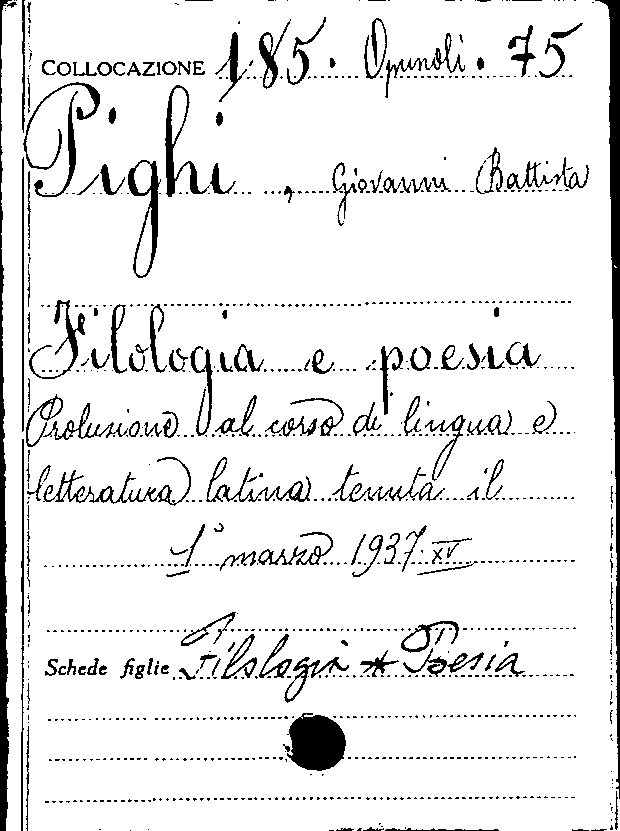 COLLOCAZIONE 185. Opuscoli. 75
Pighi, Giovanni Battista
Filologia e poesia
Prolusione al corso di lingua e
letteratura latina tenuta il
1° marzo 1937. XV
Schede figlie Filologia * Poesia